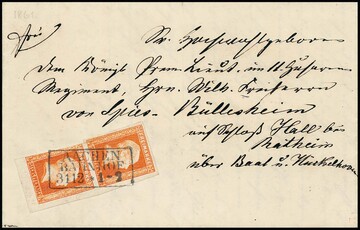 frei
Sr. Hochwohlgeboren
dem Königl. Prem. Lieut. im 11. Husaren
Regiment, Hrn. Wilh. Freiherrn
von Spies-Büllesheim
auf Schloß Hall bei
Ratheim
über Baal u. Hückelhoven
ACHEN
BAHNHOF
31 12 * 1-2